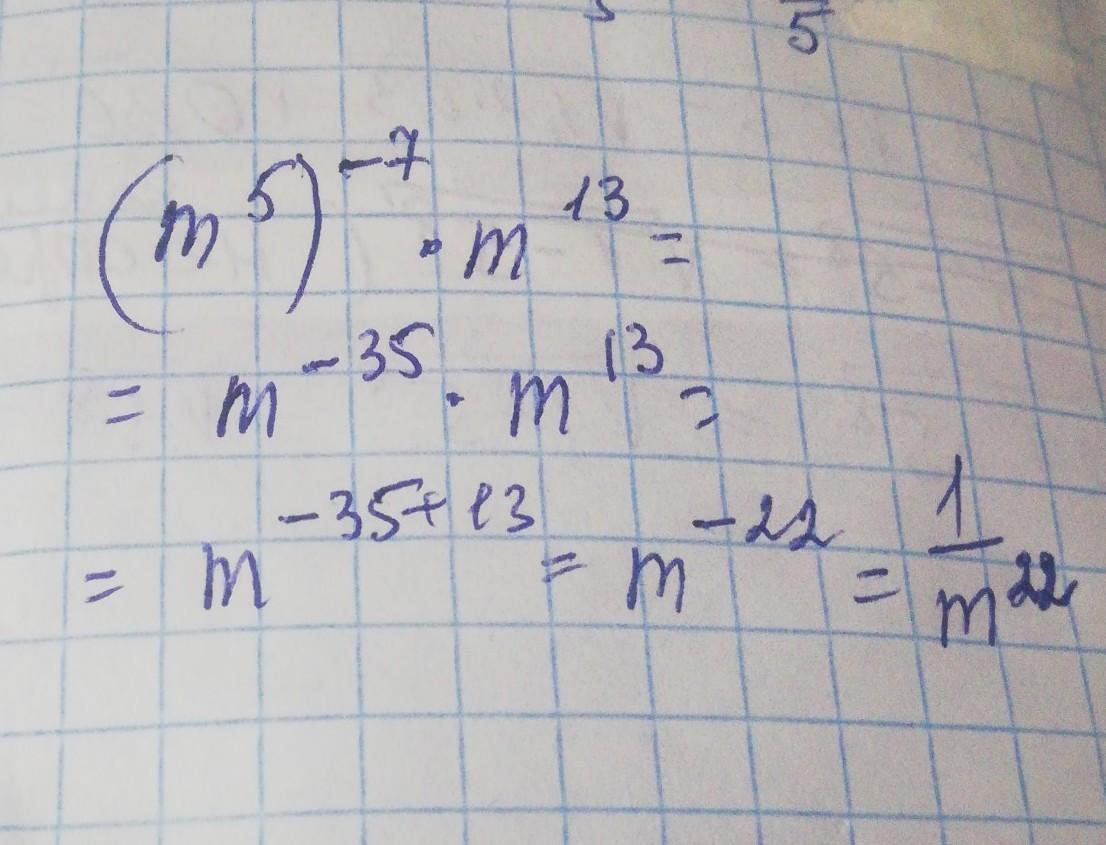 5
(m⁵)⁻⁷ · m¹³ =
= m⁻³⁵ · m¹³ =
= m⁻³⁵⁺¹³ = m⁻²² = 1/m²²